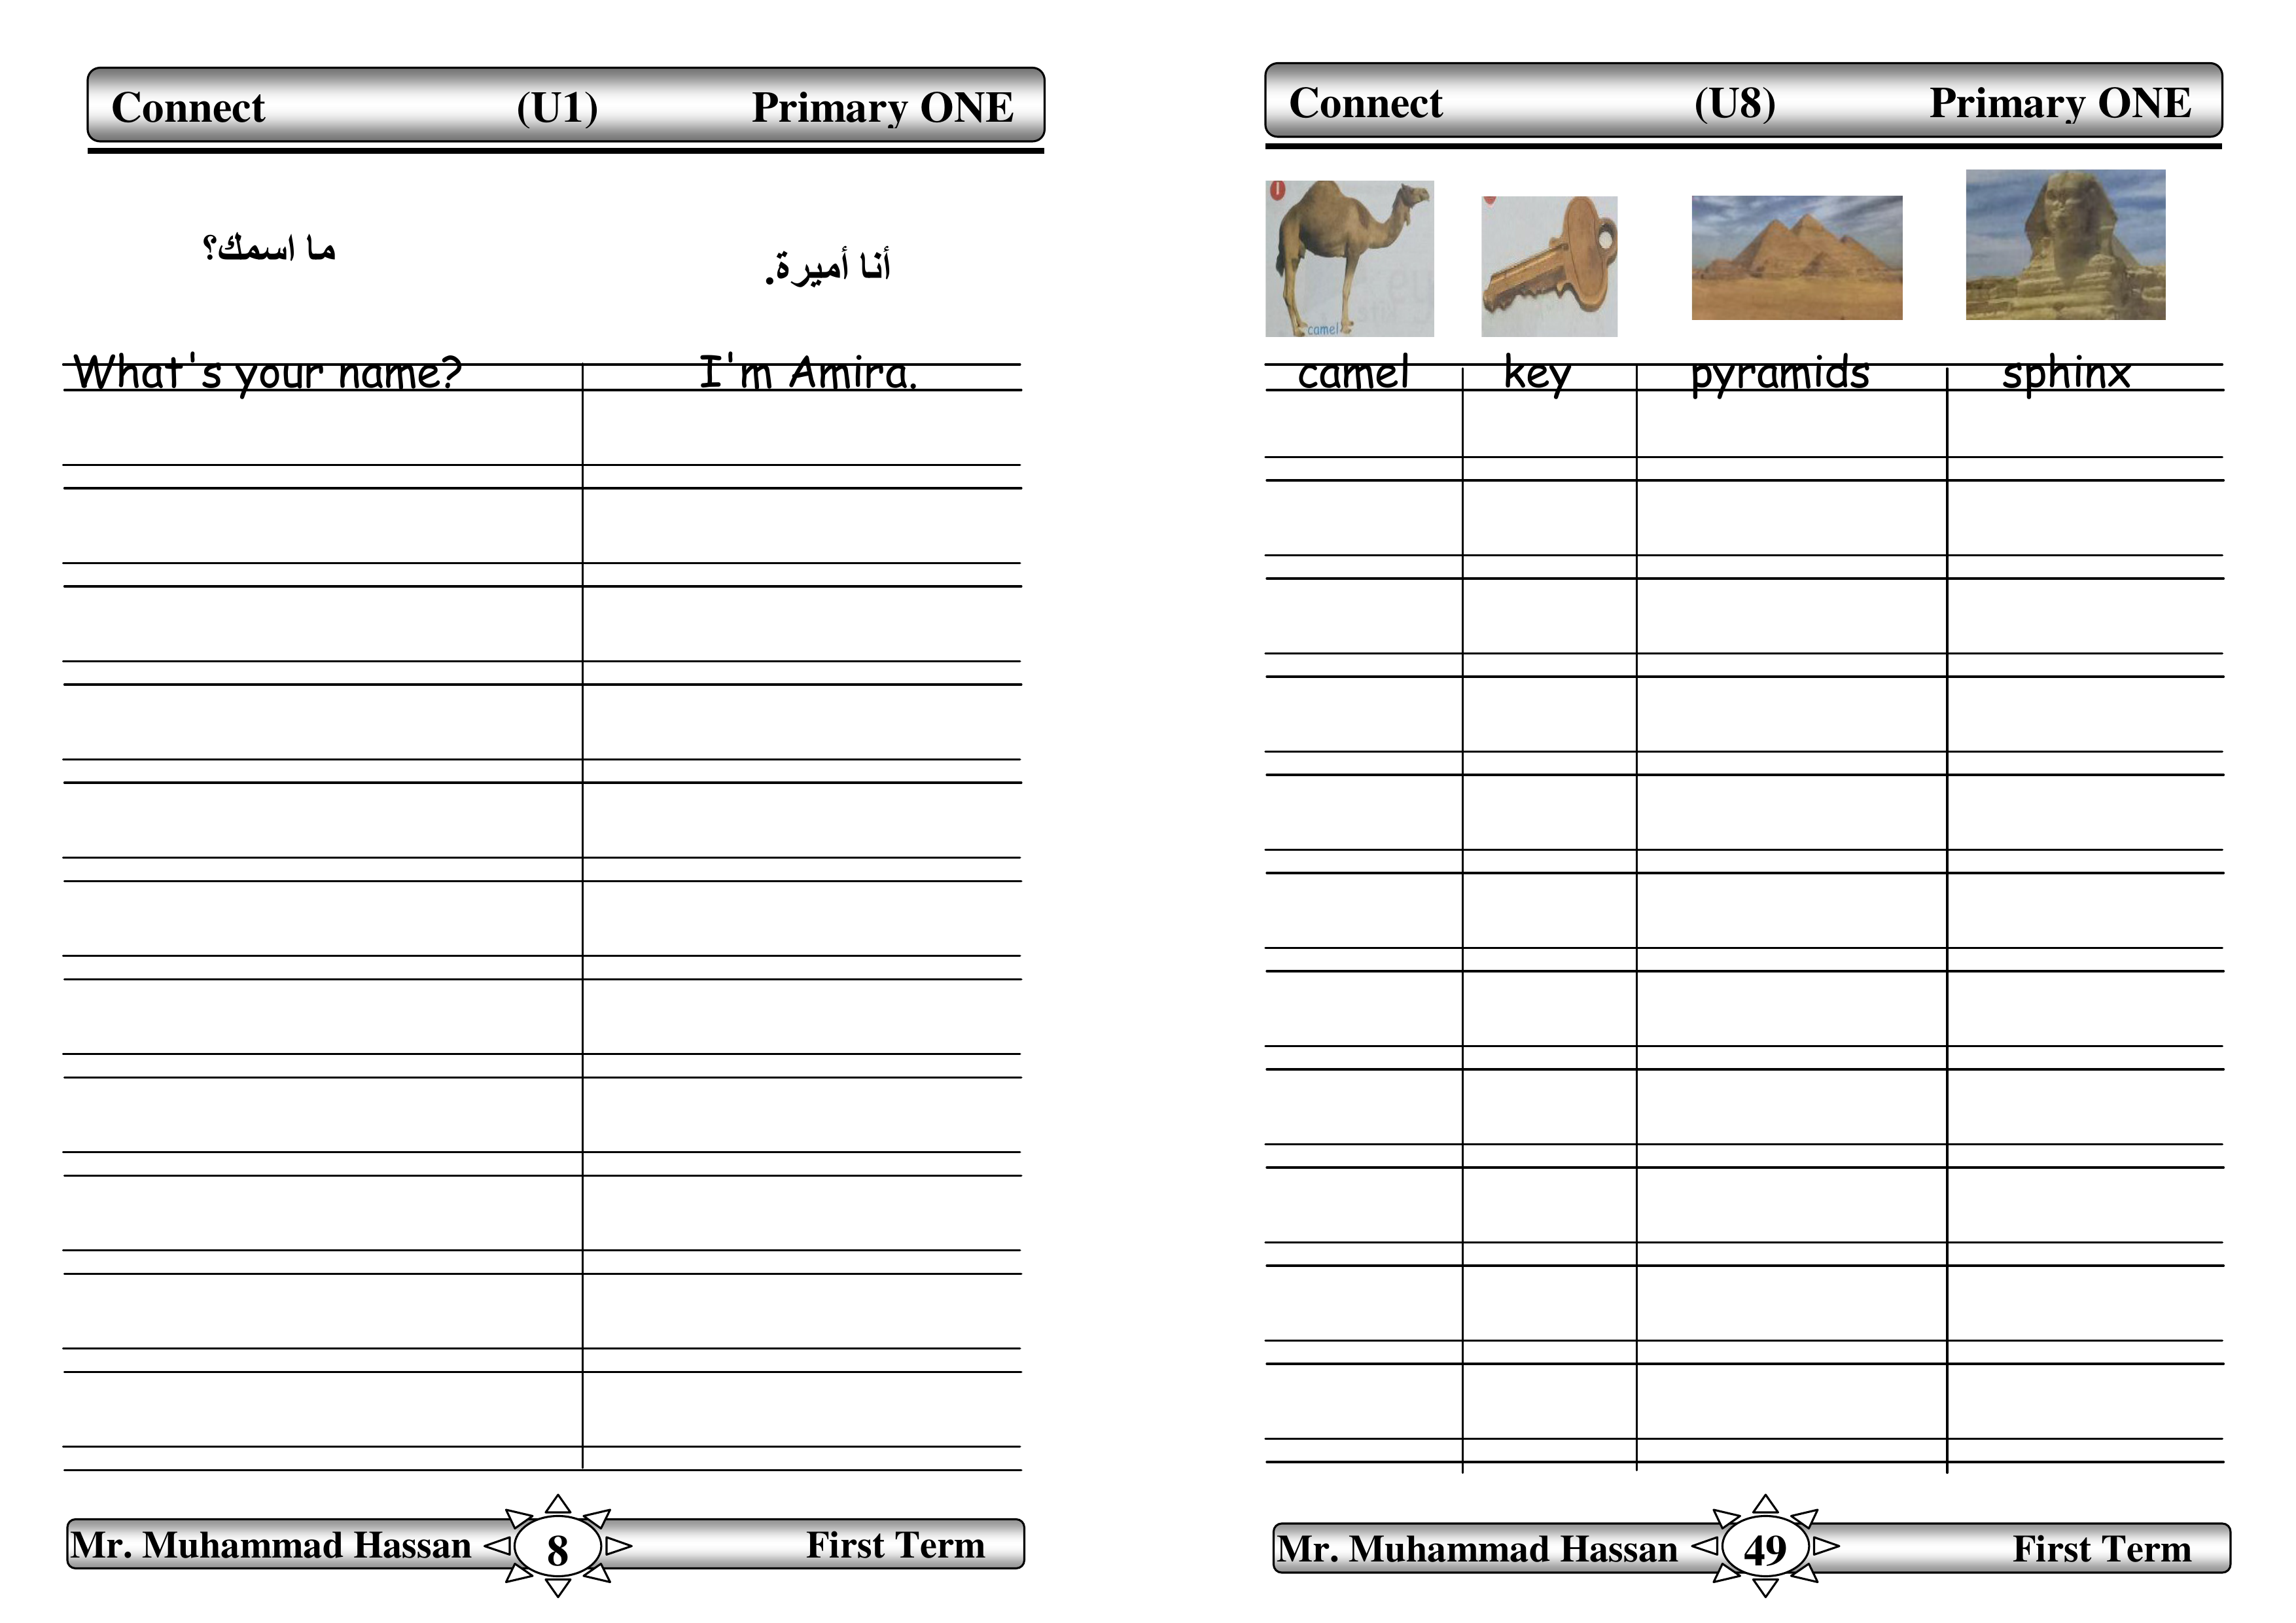 Connect (U1) Primary ONE
ما اسمك؟ أنا أميرة.
What's your name? I'm Amira.
Mr. Muhammad Hassan 8 First Term
Connect (U8) Primary ONE
1
camel
camel key pyramids sphinx
Mr. Muhammad Hassan 49 First Term